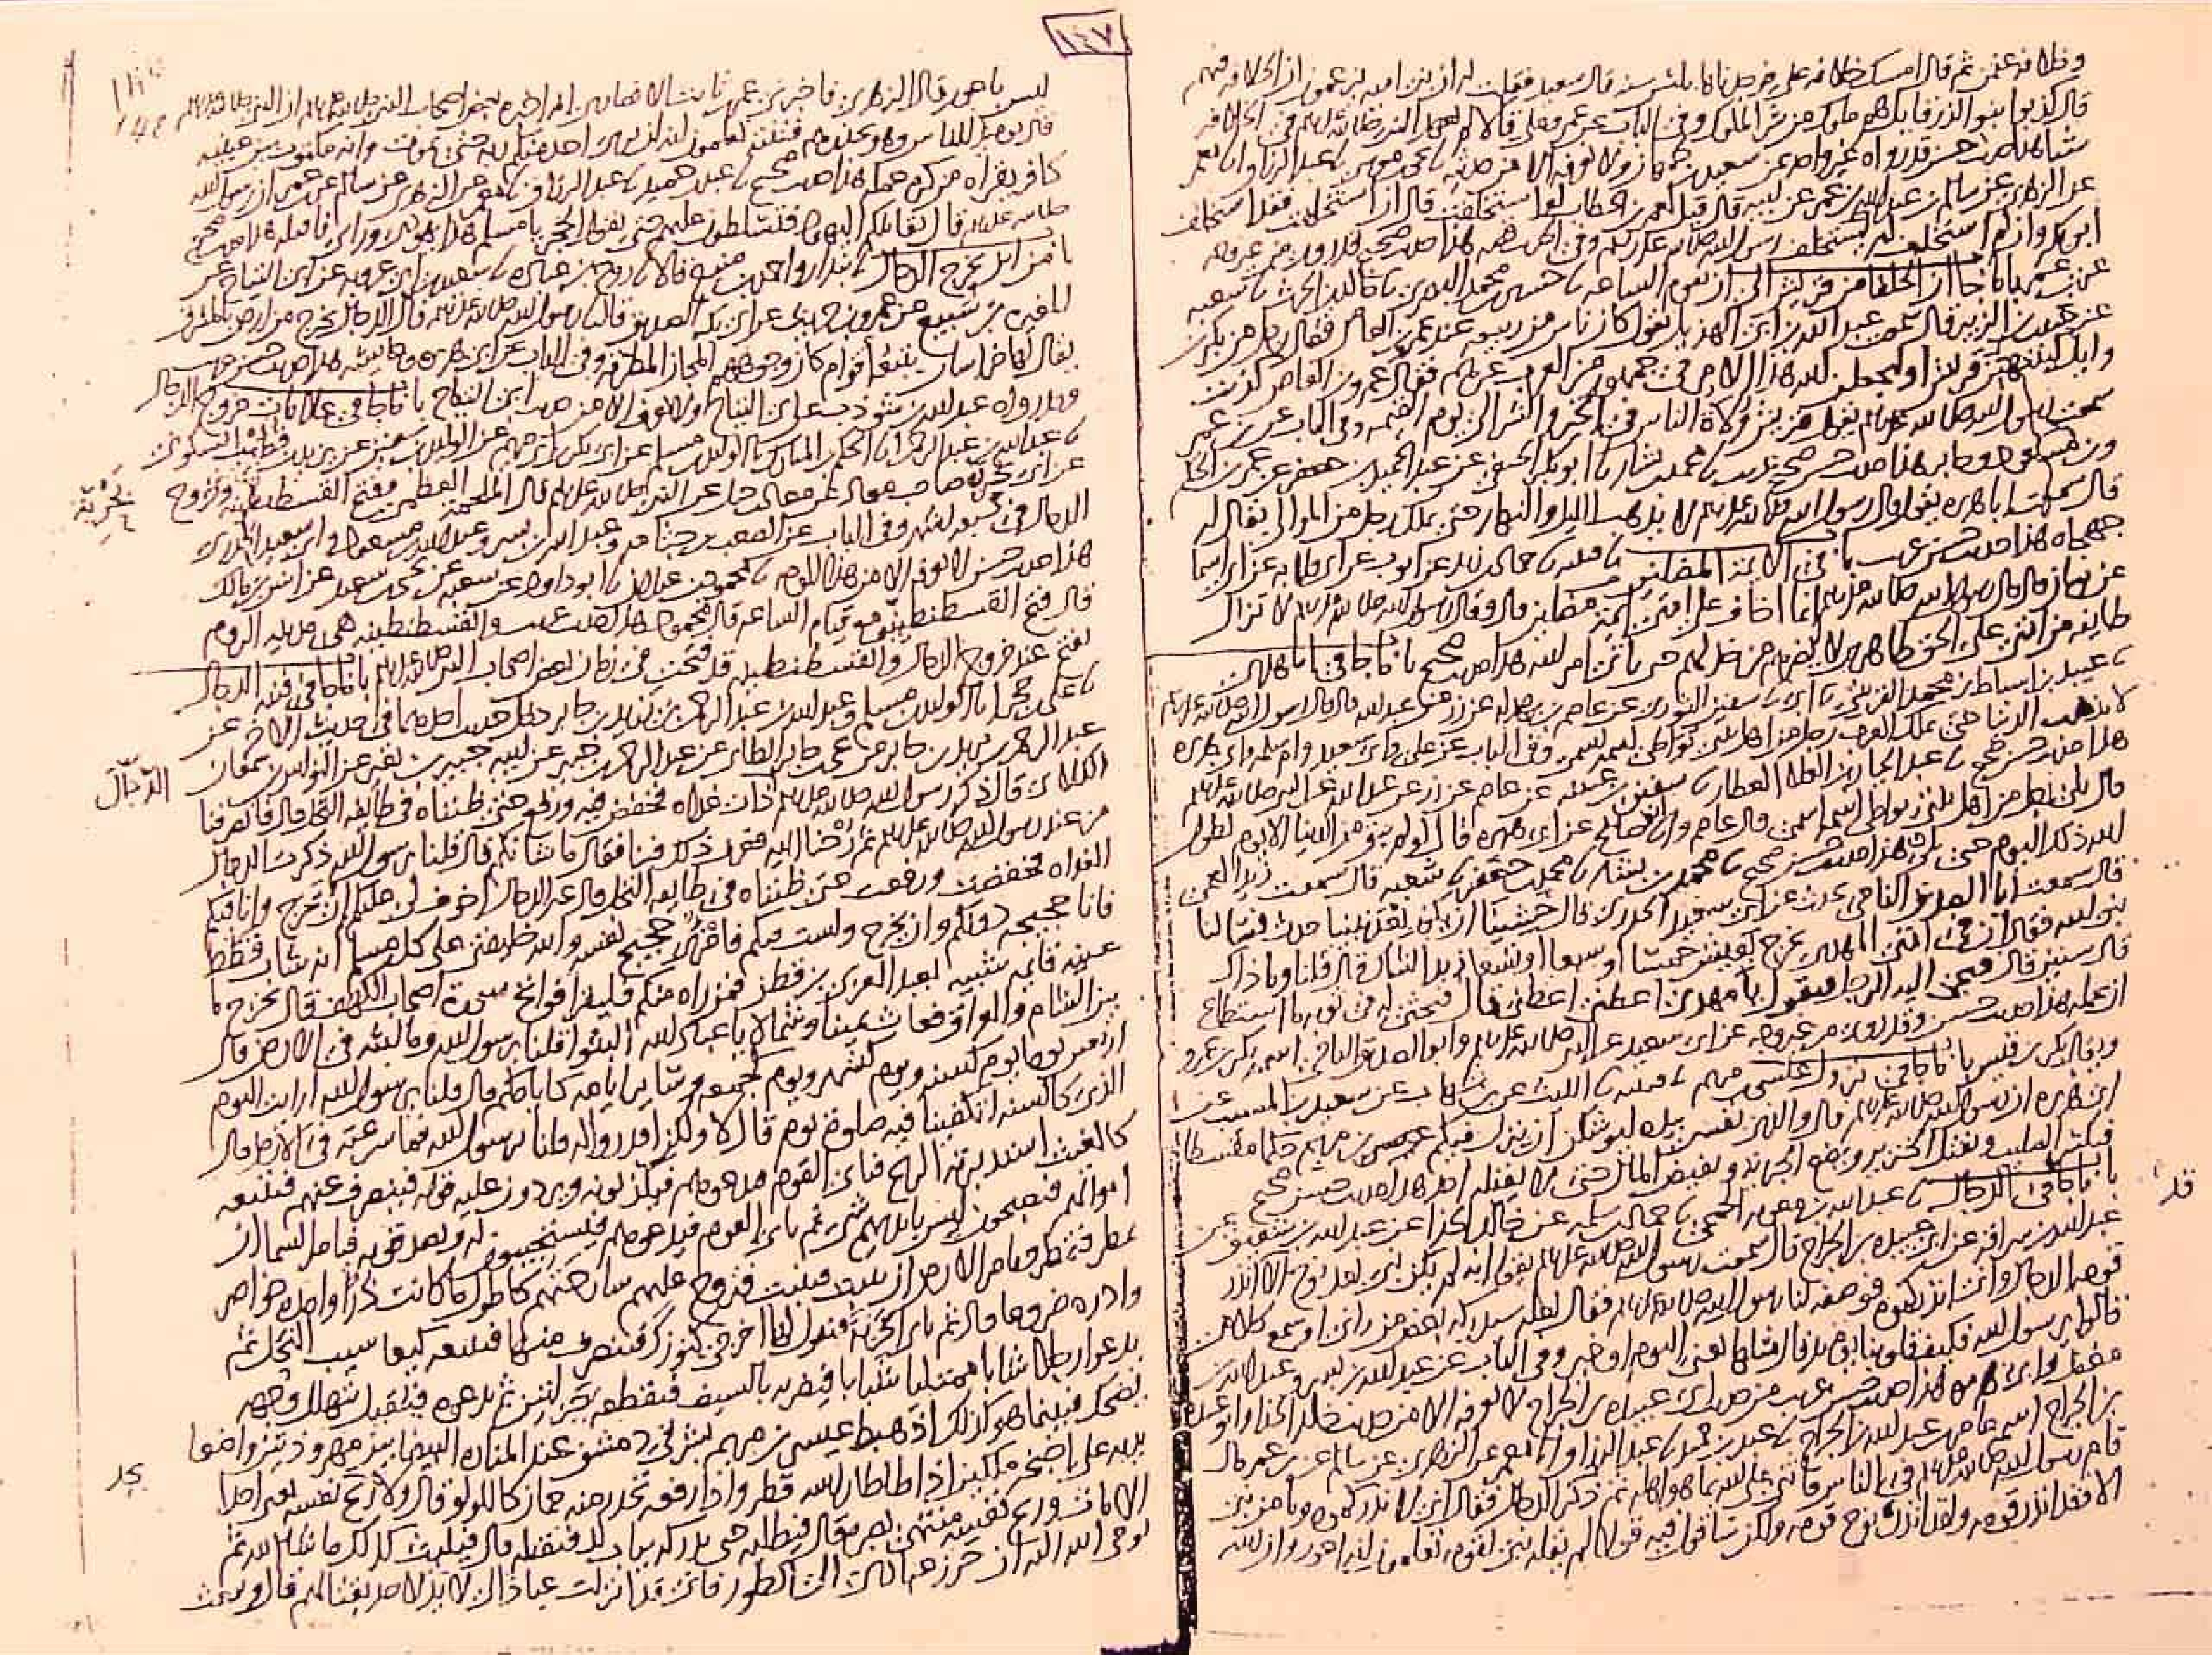 ١٤٧
وخلافة عثمن ثم قال امسك خلافة علي فوجدناها ثلثين سنة قال سعيد فقلت له ان بني امية يزعمون ان الخلافة فيهم
قال كذبوا بنوا الزرقا بل هم ملوك من شر الملوك وفي الباب عن عمر وعلي قالا لم يعهد النبي صلى الله عليه وسلم في الخلافة
شيا هذا حديث حسن قد رواه غير واحد عن سعيد بن جمهان ولا نعرفه الا من حديثه نا يحيى بن موسى نا عبد الرزاق انا معمر
عن الزهري عن سالم بن عبد الله بن عمر عن ابيه قال قيل لعمر بن الخطاب لو استخلفت قال ان استخلف فقد استخلف
ابو بكر وان لم استخلف لم يستخلف رسول الله صلى الله عليه وسلم وفي الحديث قصة هذا حديث صحيح قد روي من غير وجه
عن ابن عمر باب ما جا ان الخلفا من قريش الى ان تقوم الساعة نا حسين بن محمد البصري نا خالد بن الحرث نا شعبة
عن حبيب بن الزبير قال سمعت عبد الله بن ابي الهذيل يقول كان ناس من ربيعة عند عمرو بن العاص فقال رجل من بكر بن
وايل لتنتهين قريش او ليجعلن الله هذا الامر في جمهور من العرب غيرهم فقال عمرو بن العاص كذبت
سمعت رسول الله صلى الله عليه وسلم يقول قريش ولاة الناس في الخير والشر الى يوم القيمة وفي الباب عن ابن عمر
وابن مسعود وجابر هذا حديث حسن صحيح غريب نا محمد بن بشار نا ابو بكر الحنفي عن عبد الحميد بن جعفر عن عمر بن الحكم
قال سمعت ابا هريرة يقول قال رسول الله صلى الله عليه وسلم لا يذهب الليل والنهار حتى يملك رجل من الموالي يقال له
جهجاه هذا حديث حسن غريب باب في الائمة المضلين نا قتيبة نا حماد بن زيد عن ايوب عن ابي قلابة عن ابي اسما
عن ثوبان قال قال رسول الله صلى الله عليه وسلم انما اخاف على امتي ائمة مضلين قال وقال رسول الله صلى الله عليه وسلم لا تزال
طايفة من امتي على الحق ظاهرين لا يضرهم من خذلهم حتى ياتي امر الله هذا حديث صحيح باب ما جا في المهدي
نا عبيد بن اسباط بن محمد القرشي نا ابي نا سفين الثوري عن عاصم بن بهدلة عن زر عن عبد الله قال قال رسول الله صلى الله عليه وسلم
لا تذهب الدنيا حتى يملك العرب رجل من اهل بيتي يواطي اسمه اسمي وفي الباب عن علي وابي سعيد وام سلمة وابي هريرة
هذا حديث حسن صحيح نا عبد الجبار بن العلا العطار نا سفين بن عيينة عن عاصم عن زر عن عبد الله عن النبي صلى الله عليه وسلم
قال يلي رجل من اهل بيتي يواطي اسمه اسمي قال عاصم وانا ابو صالح عن ابي هريرة قال لو لم يبق من الدنيا الا يوم لطول
الله ذلك اليوم حتى يلي هذا حديث حسن صحيح نا محمد بن بشار نا محمد بن جعفر نا شعبة قال سمعت زيد العمي
قال سمعت ابا الصديق الناجي يحدث عن ابي سعيد الخدري قال خشينا ان يكون بعد نبينا حدث فسالنا
نبي الله فقال ان في امتي المهدي يخرج يعيش خمسا او سبعا او تسعا زيد الشاك قال قلنا وما ذاك
قال سنين قال فيجي اليه الرجل فيقول يا مهدي اعطني اعطني قال فيحثي له في ثوبه ما استطاع
ان يحمله هذا حديث حسن وقد روي من غير وجه عن ابي سعيد عن النبي صلى الله عليه وسلم وابو الصديق الناجي اسمه بكر بن عمرو
ويقال بكر بن قيس باب ما جا في نزول عيسى بن مريم نا قتيبة نا الليث عن ابن شهاب عن سعيد بن المسيب عن
ابي هريرة ان رسول الله صلى الله عليه وسلم قال والذي نفسي بيده ليوشكن ان ينزل فيكم عيسى بن مريم حكما مقسطا
فيكسر الصليب ويقتل الخنزير ويضع الجزية ويفيض المال حتى لا يقبله احد هذا حديث حسن صحيح
باب ما جا في الدجال نا عبد الله بن معوية الجمحي نا حماد بن سلمة عن خالد الحذا عن عبد الله بن شقيق عن
عبد الله بن سراقة عن ابي عبيدة بن الجراح قال سمعت رسول الله صلى الله عليه وسلم يقول انه لم يكن نبي بعد نوح الا انذر
قومه الدجال واني انذركموه فوصفه لنا رسول الله صلى الله عليه وسلم فقال لعله سيدركه بعض من راني او سمع كلامي
قالوا يرسول الله فكيف قلوبنا يوميذ قال مثلها يعني اليوم او خير وفي الباب عن عبد الله بن بسر وعبد الله بن
مغفل وابي هريرة هذا حديث حسن غريب من حديث ابي عبيدة بن الجراح لا نعرفه الا من حديث خالد الحذا وابو عبيدة
بن الجراح اسمه عامر بن عبد الله بن الجراح نا عبد بن حميد نا عبد الرزاق انا معمر عن الزهري عن سالم عن ابن عمر قال
قام رسول الله صلى الله عليه وسلم في الناس فاثنى على الله بما هو اهله ثم ذكر الدجال فقال اني لانذركموه وما من نبي
الا وقد انذر قومه ولقد انذره نوح قومه ولكن ساقول فيه قولا لم يقله نبي لقومه تعلمون انه اعور وان الله
ليس باعور قال الزهري فاخبرني عمر بن ثابت الانصاري انه اخبره بعض اصحاب النبي صلى الله عليه وسلم ان النبي صلى الله عليه وسلم
قال يوميذ للناس وهو يحذرهم فتنته تعلمون انه لن يرى احد منكم ربه حتى يموت وانه مكتوب بين عينيه
كافر يقراه من كره عمله هذا حديث صحيح نا عبد بن حميد نا عبد الرزاق انا معمر عن الزهري عن سالم عن ابن عمر ان رسول الله
صلى الله عليه وسلم قال تقاتلكم اليهود فتسلطون عليهم حتى يقول الحجر يا مسلم هذا يهودي وراي فاقتله هذا حديث صحيح
باب من اين يخرج الدجال نا بندار واحمد بن منيع قالا نا روح بن عبادة نا سعيد بن ابي عروبة عن ابي التياح عن
المغيرة بن سبيع عن عمرو بن حريث عن ابي بكر الصديق قال نا رسول الله صلى الله عليه وسلم قال الدجال يخرج من ارض بالمشرق
يقال لها خراسان يتبعه اقوام كان وجوههم المجان المطرقة وفي الباب عن ابي هريرة وعايشة هذا حديث حسن غريب
وقد رواه عبد الله بن شوذب عن ابي التياح ولا نعرفه الا من حديث ابي التياح باب ما جا في علامات خروج الدجال
نا عبد الله بن عبد الرحمن انا الحكم بن المبارك نا الوليد بن مسلم عن ابي بكر بن ابي مريم عن الوليد بن سفين عن يزيد بن قطيب السكوني
عن ابي بحرية صاحب معاذ عن معاذ بن جبل عن النبي صلى الله عليه وسلم قال الملحمة العظمى وفتح القسطنطينية وخروج
بحريّة
الدجال في سبعة اشهر وفي الباب عن الصعب بن جثامة وعبد الله بن بسر وعبد الله بن مسعود وابي سعيد الخدري
هذا حديث حسن لا نعرفه الا من هذا الوجه نا محمود بن غيلان نا ابو داود عن شعبة عن يحيى بن سعيد عن انس بن مالك
قال فتح القسطنطينية مع قيام الساعة قال محمود هذا حديث غريب والقسطنطينية هي مدينة الروم
تفتح عند خروج الدجال والقسطنطينية قد فتحت في زمان بعض اصحاب النبي صلى الله عليه وسلم باب ما جا في فتنة الدجال
نا علي بن حجر انا الوليد بن مسلم وعبد الله بن عبد الرحمن بن يزيد بن جابر دخل حديث احدهما في حديث الاخر عن
عبد الرحمن بن يزيد بن جابر عن يحيى بن جابر الطائي عن عبد الرحمن بن جبير عن ابيه جبير بن نفير عن النواس بن سمعان
الكلابي قال ذكر رسول الله صلى الله عليه وسلم الدجال ذات غداة فخفض فيه ورفع حتى ظنناه في طايفة النخل قال فانصرفنا
الدّجال
من عند رسول الله صلى الله عليه وسلم ثم رحنا اليه فعرف ذلك فينا فقال ما شانكم قال قلنا يرسول الله ذكرت الدجال
الغداة فخفضت ورفعت حتى ظنناه في طايفة النخل قال غير الدجال اخوف لي عليكم ان يخرج وانا فيكم
فانا حجيجه دونكم وان يخرج ولست فيكم فامرو حجيج نفسه والله خليفتي على كل مسلم انه شاب قطط
عينه قايمة شبيه بعبد العزى بن قطن فمن راه منكم فليقرا فواتح سورة اصحاب الكهف قال يخرج ما
بين الشام والعراق فعاث يمينا وشمالا يا عباد الله البثوا قلنا يرسول الله وما لبثه في الارض قال
اربعين يوما يوم كسنة ويوم كشهر ويوم كجمعة وساير ايامه كايامكم قال قلنا يرسول الله ارايت اليوم
الذي كالسنة اتكفينا فيه صلوة يوم قال لا ولكن اقدروا له قلنا يرسول الله فما سرعته في الارض قال
كالغيث استدبرته الريح فياتي القوم فيدعوهم فيكذبونه ويردون عليه قوله فينصرف عنهم فتتبعه
اموالهم فيصبحون ليس بايديهم شي ثم ياتي القوم فيدعوهم فيستجيبون له ويصدقونه فيامر السما ان
تمطر فتمطر ويامر الارض ان تنبت فتنبت فتروح عليهم سارحتهم كاطول ما كانت ذرا وامده خواصر
وادره ضروعا قال ثم ياتي الخربة فيقول لها اخرجي كنوزك فينصرف منها فتتبعه كيعاسيب النحل ثم
يدعو رجلا شابا ممتليا شبابا فيضربه بالسيف فيقطعه جزلتين ثم يدعوه فيقبل يتهلل وجهه
يضحك فبينما هو كذلك اذ هبط عيسى بن مريم بشرقي دمشق عند المنارة البيضا بين مهرودتين واضعا
يده على اجنحة ملكين اذا طاطا راسه قطر واذا رفعه تحدر منه جمان كاللولو قال ولا يجد ريح نفسه يعني احدا
الا مات وريح نفسه منتهى بصره قال فيطلبه حتى يدركه بباب لد فيقتله قال فيلبث كذلك ما شا الله ثم
يوحي الله اليه ان حرز عبادي الى الطور فاني قد انزلت عبادا لي لا يد لاحد بقتالهم قال ويبعث